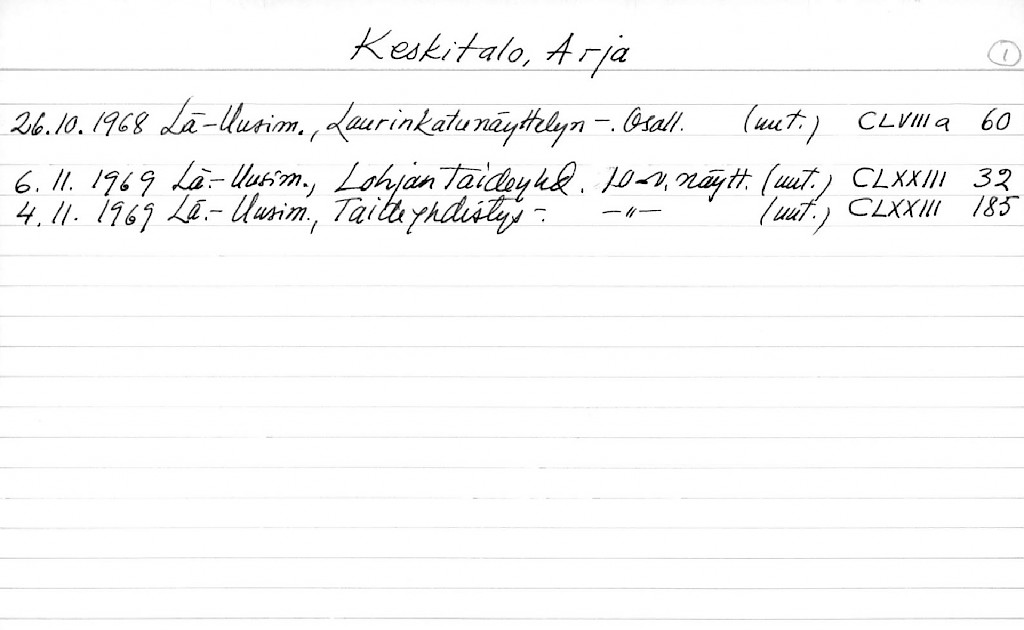 Keskitalo, Arja
1
26.10.1968 Lä-Uusim., Laurinkatunäyttelyn -. Osall. (uut.) CLVIII a 60
6. 11. 1969 Lä.- Uusim., Lohjan Taideyhd. 10-v. näytt. (uut.) CLXXIII 32
4. 11. 1969 Lä.- Uusim., Taideyhdistys -. —"— (uut.) CLXXIII 185